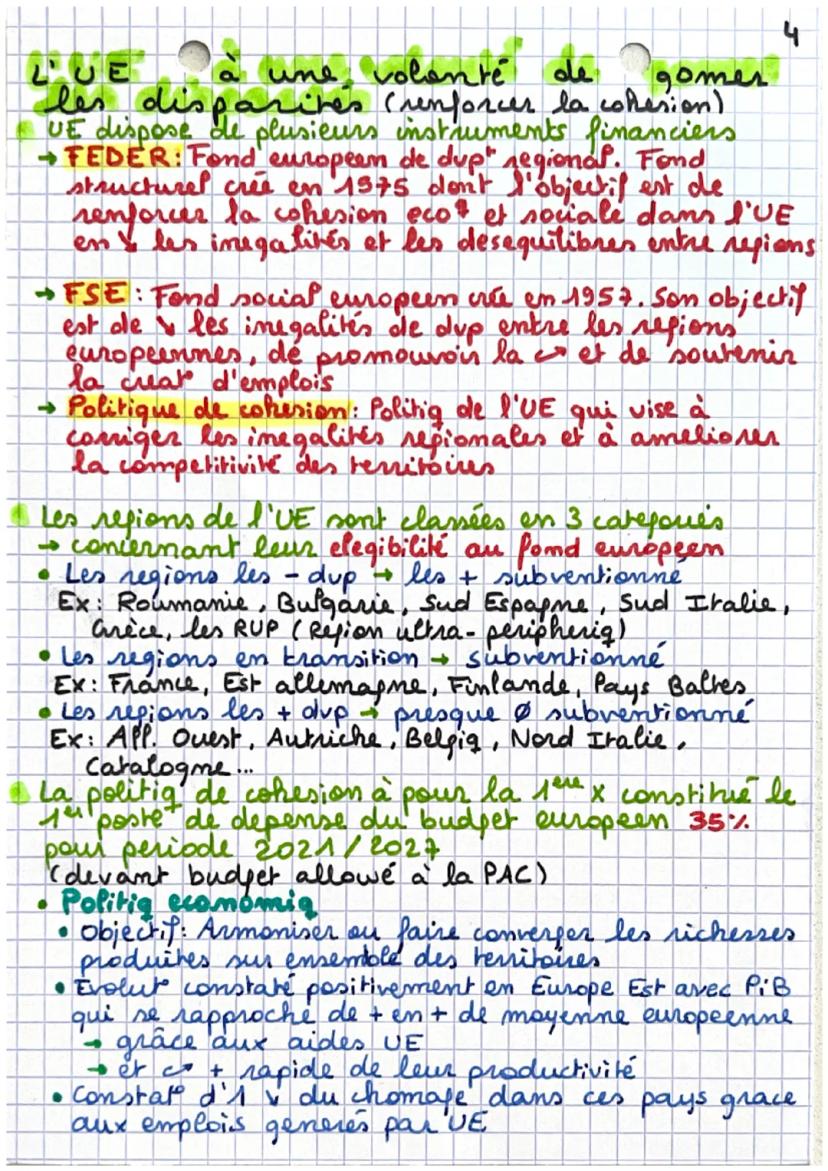 4
L'UE à une volonté de gomer
les disparités (renforcer la cohesion)
UE dispose de plusieurs instruments financiers
→ FEDER: Fond europeen de dvpt regional. Fond
structurel crée en 1975 dont l'objectif est de
renforcer la cohesion ecoq et sociale dans l'UE
en ↘ les inegalités et les desequilibres entre regions
→ FSE : Fond social europeen crée en 1957. Son objectif
est de ↘ les inegalités de dvp entre les regions
europeennes, de promouvoir la cr° et de soutenir
la creat° d'emplois
→ Politique de cohesion: Politiq de l'UE qui vise à
corriger les inegalités regionales et à ameliorer
la competitivité des territoires
Les regions de l'UE sont classées en 3 categories
→ concernant leur elegibilité au fond europeen
• Les regions les - dvp → les + subventionné
Ex: Roumanie, Bulgarie, Sud Espagne, Sud Italie,
Grèce, les RUP (Region ultra-peripheriq)
• Les regions en transition → subventionné
Ex: France, Est allemagne, Finlande, Pays Baltes
• Les regions les + dvp → presque Ø subventionné
Ex: All. Ouest, Autriche, Belgiq, Nord Italie,
Catalogne...
La politiq de cohesion à pour la 1ere x constitué le
1er poste de depense du budget europeen 35%
pour periode 2021/2027
(devant budget alloué à la PAC)
• Politiq economiq
• Objectif: Armoniser ou faire converger les richesses
produites sur ensemble des territoires
• Evolut° constaté positivement en Europe Est avec PiB
qui se rapproche de + en + de moyenne europeenne
→ grâce aux aides UE
→ et cr° + rapide de leur productivité
• Constat d'1 ↘ du chomage dans ces pays grace
aux emplois generés par UE